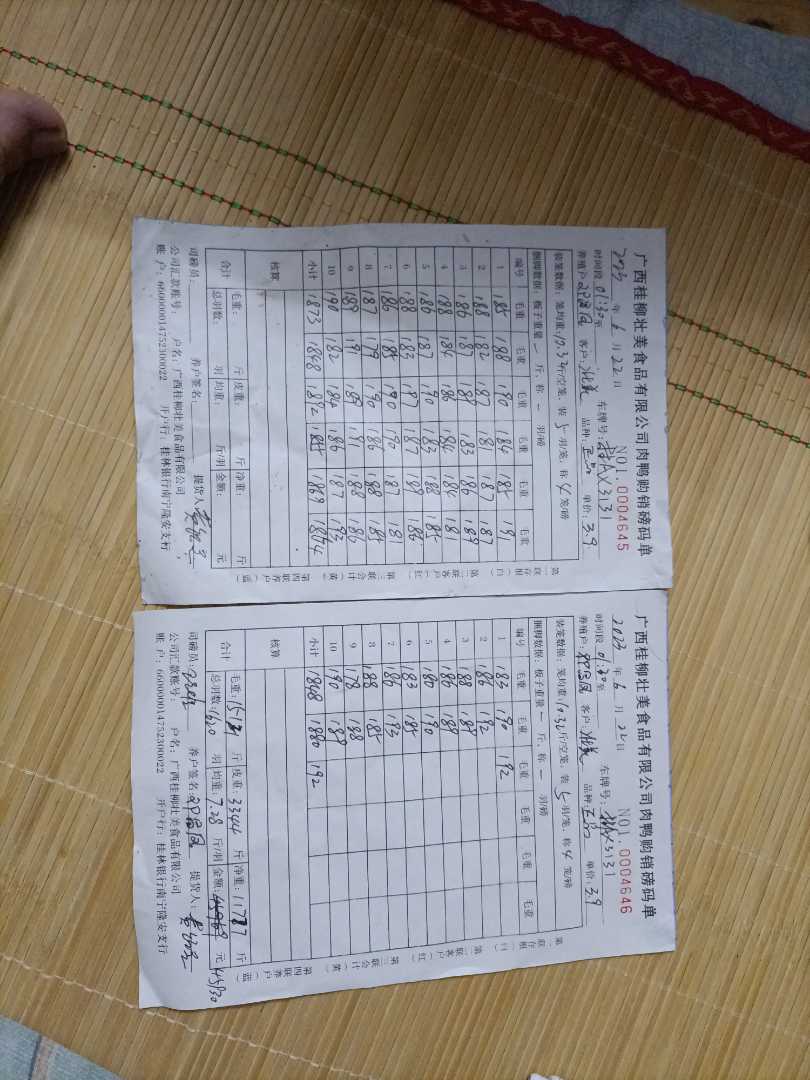 广西桂柳壮美食品有限公司肉鸭购销磅码单
NO1.0004645
2023 年 6 月 22 日 车牌号:
时间段 01:30至
养殖户: 客户: 品种: 单价: 3.9
装笼数据: 笼均重: 10.32斤/空笼、装 5 羽/笼、称 4 笼/磅
捆脚数据: 板子重量 一 斤、称 一 羽/磅
编号 毛重 毛重 毛重 毛重 毛重 毛重
1 185 188 190 184 185 181
2 188 182 187 181 187 187
3 186 187 188 183 186 189
4 188 184 186 184 184 181
5 186 187 190 183 188 185
6 188 183 187 187 189 186
7 186 185 190 190 187 181
8 187 179 190 186 188 185
9 189 191 189 191 188 186
10 190 182 184 186 187 193
小计 1873 1848 1882 1855 1869 1854
核算
合计 毛重: 斤 皮重: 斤 净重: 斤
总羽数: 羽 均重: 斤/羽 金额: 元
司磅员: 养户签名: 提货人:
公司汇款账号: 户名: 广西桂柳壮美食品有限公司
账 户: 660000014752300022 开户行: 桂林银行南宁隆安支行
第一联存根(白) 第二联客户(红) 第三联会计(黄) 第四联养户(蓝)
广西桂柳壮美食品有限公司肉鸭购销磅码单
NO1.0004646
2023 年 6 月 22 日 车牌号:
时间段 01:30至
养殖户: 客户: 品种: 单价: 3.9
装笼数据: 笼均重: 10.32斤/空笼、装 5 羽/笼、称 4 笼/磅
捆脚数据: 板子重量 一 斤、称 一 羽/磅
编号 毛重 毛重 毛重 毛重 毛重 毛重
1 183 190 192
2 186 192
3 188 189
4 186 188
5 180 190
6 183 185
7 186 193
8 188 185
9 178 188
10 190 189
小计 1848 1880 192
核算
合计 毛重: 斤 皮重: 3344 斤 净重: 斤
总羽数: 1620 羽 均重: 7.28 斤/羽 金额: 元 45930
司磅员: 养户签名: 提货人:
公司汇款账号: 户名: 广西桂柳壮美食品有限公司
账 户: 660000014752300022 开户行: 桂林银行南宁隆安支行
第一联存根(白) 第二联客户(红) 第三联会计(黄) 第四联养户(蓝)